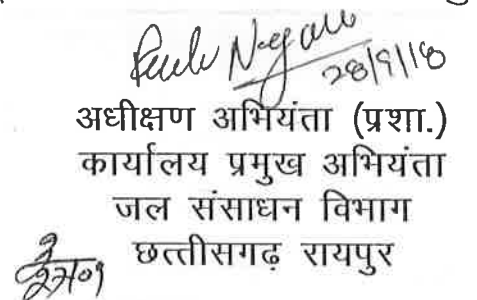 28/9/18
अधीक्षण अभियंता (प्रशा.)
कार्यालय प्रमुख अभियंता
जल संसाधन विभाग
छत्तीसगढ़ रायपुर